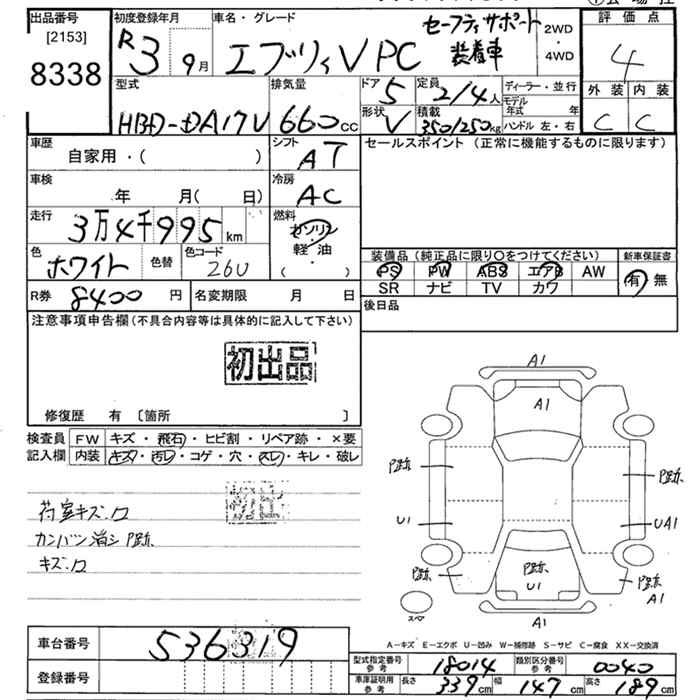 出品番号
[2153]
8338
初度登録年月
R3 9月
車名・グレード
エブリィV PC
セーフティサポート
装着車
2WD
・
4WD
評価点
4
外装 内装
C C
型式
HBD-DA17V
排気量
660cc
ドア
5
定員
2/4人
形状
V
積載
350/250kg
ディーラー・並行
モデル
年式 年
ハンドル 左・右
車歴
自家用・( )
シフト
AT
車検
年 月( 日)
冷房
AC
走行
3万4千995km
燃料
ガソリン
軽・油
( ・ )
色
ホワイト
色替
色コード
26U
R券
8400円
名変期限 月 日
セールスポイント (正常に機能するものに限ります)
装備品(純正品に限り○をつけてください)
PS PW ABS エアB AW
SR ナビ TV カワ
新車保証書
有 無
後日品
注意事項申告欄(不具合内容等は具体的に記入して下さい)
初出品
修復歴 有 〔箇所 〕
検査員
記入欄
FW キズ・飛石・ヒビ割・リペア跡・×要
内装 キズ・汚レ・コゲ・穴・スレ・キレ・破レ
荷室キズ・ロ
カンバン消シ P跡
キズ・ロ
A1
A1
P跡
P跡
U1
UA1
P跡
P跡
U1
P跡
A1
A1
スペア
A-キズ E-エクボ U-凹み W-補修跡 S-サビ C-腐食 XX-交換済
車台番号
536319
登録番号
型式指定番号
参考
18014
類別区分番号
参考
0040
車庫証明用
参考
長さ 339cm 幅 147cm 高さ 189cm